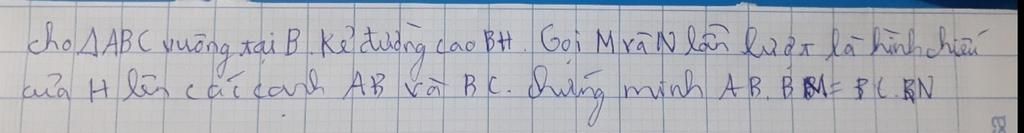 cho ΔABC vuông tại B. Kẻ đường cao BH. Gọi M và N lần lượt là hình chiếu
của H lên các cạnh AB và BC. Chứng minh AB. BM = BC. BN